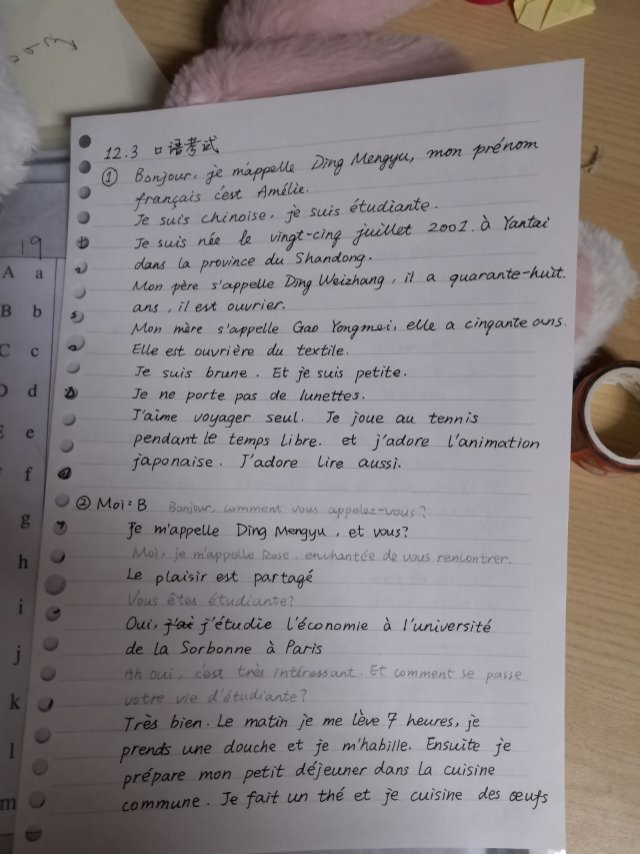 12.3 口语考试
① Bonjour, je m'appelle Ding Mengyu, mon prénom
français c'est Amélie.
Je suis chinoise, je suis étudiante.
Je suis née le vingt-cinq juillet 2001. à Yantai
dans la province du Shandong.
Mon père s'appelle Ding Weizhang, il a quarante-huit.
ans, il est ouvrier.
Mon mère s'appelle Gao Yongmei, elle a cinqante ans.
Elle est ouvrière du textile.
Je suis brune. Et je suis petite.
Je ne porte pas de lunettes.
J'aime voyager seul. Je joue au tennis
pendant le temps libre. et j'adore l'animation
japonaise. J'adore lire aussi.
② Moi: B Bonjour, comment vous appelez-vous?
Je m'appelle Ding Mengyu, et vous?
Moi, je m'appelle Rose, enchantée de vous rencontrer.
Le plaisir est partagé
Vous êtes étudiante?
Oui, j'ai j'étudie l'économie à l'université
de la Sorbonne à Paris
Ah oui, c'est très intéressant. Et comment se passe
votre vie d'étudiante?
Très bien. Le matin je me lève 7 heures, je
prends une douche et je m'habille. Ensuite je
prépare mon petit déjeuner dans la cuisine
commune. Je fait un thé et je cuisine des œufs
19
A a
B b
C c
D d
E e
f
g
h
i
j
k
l
m